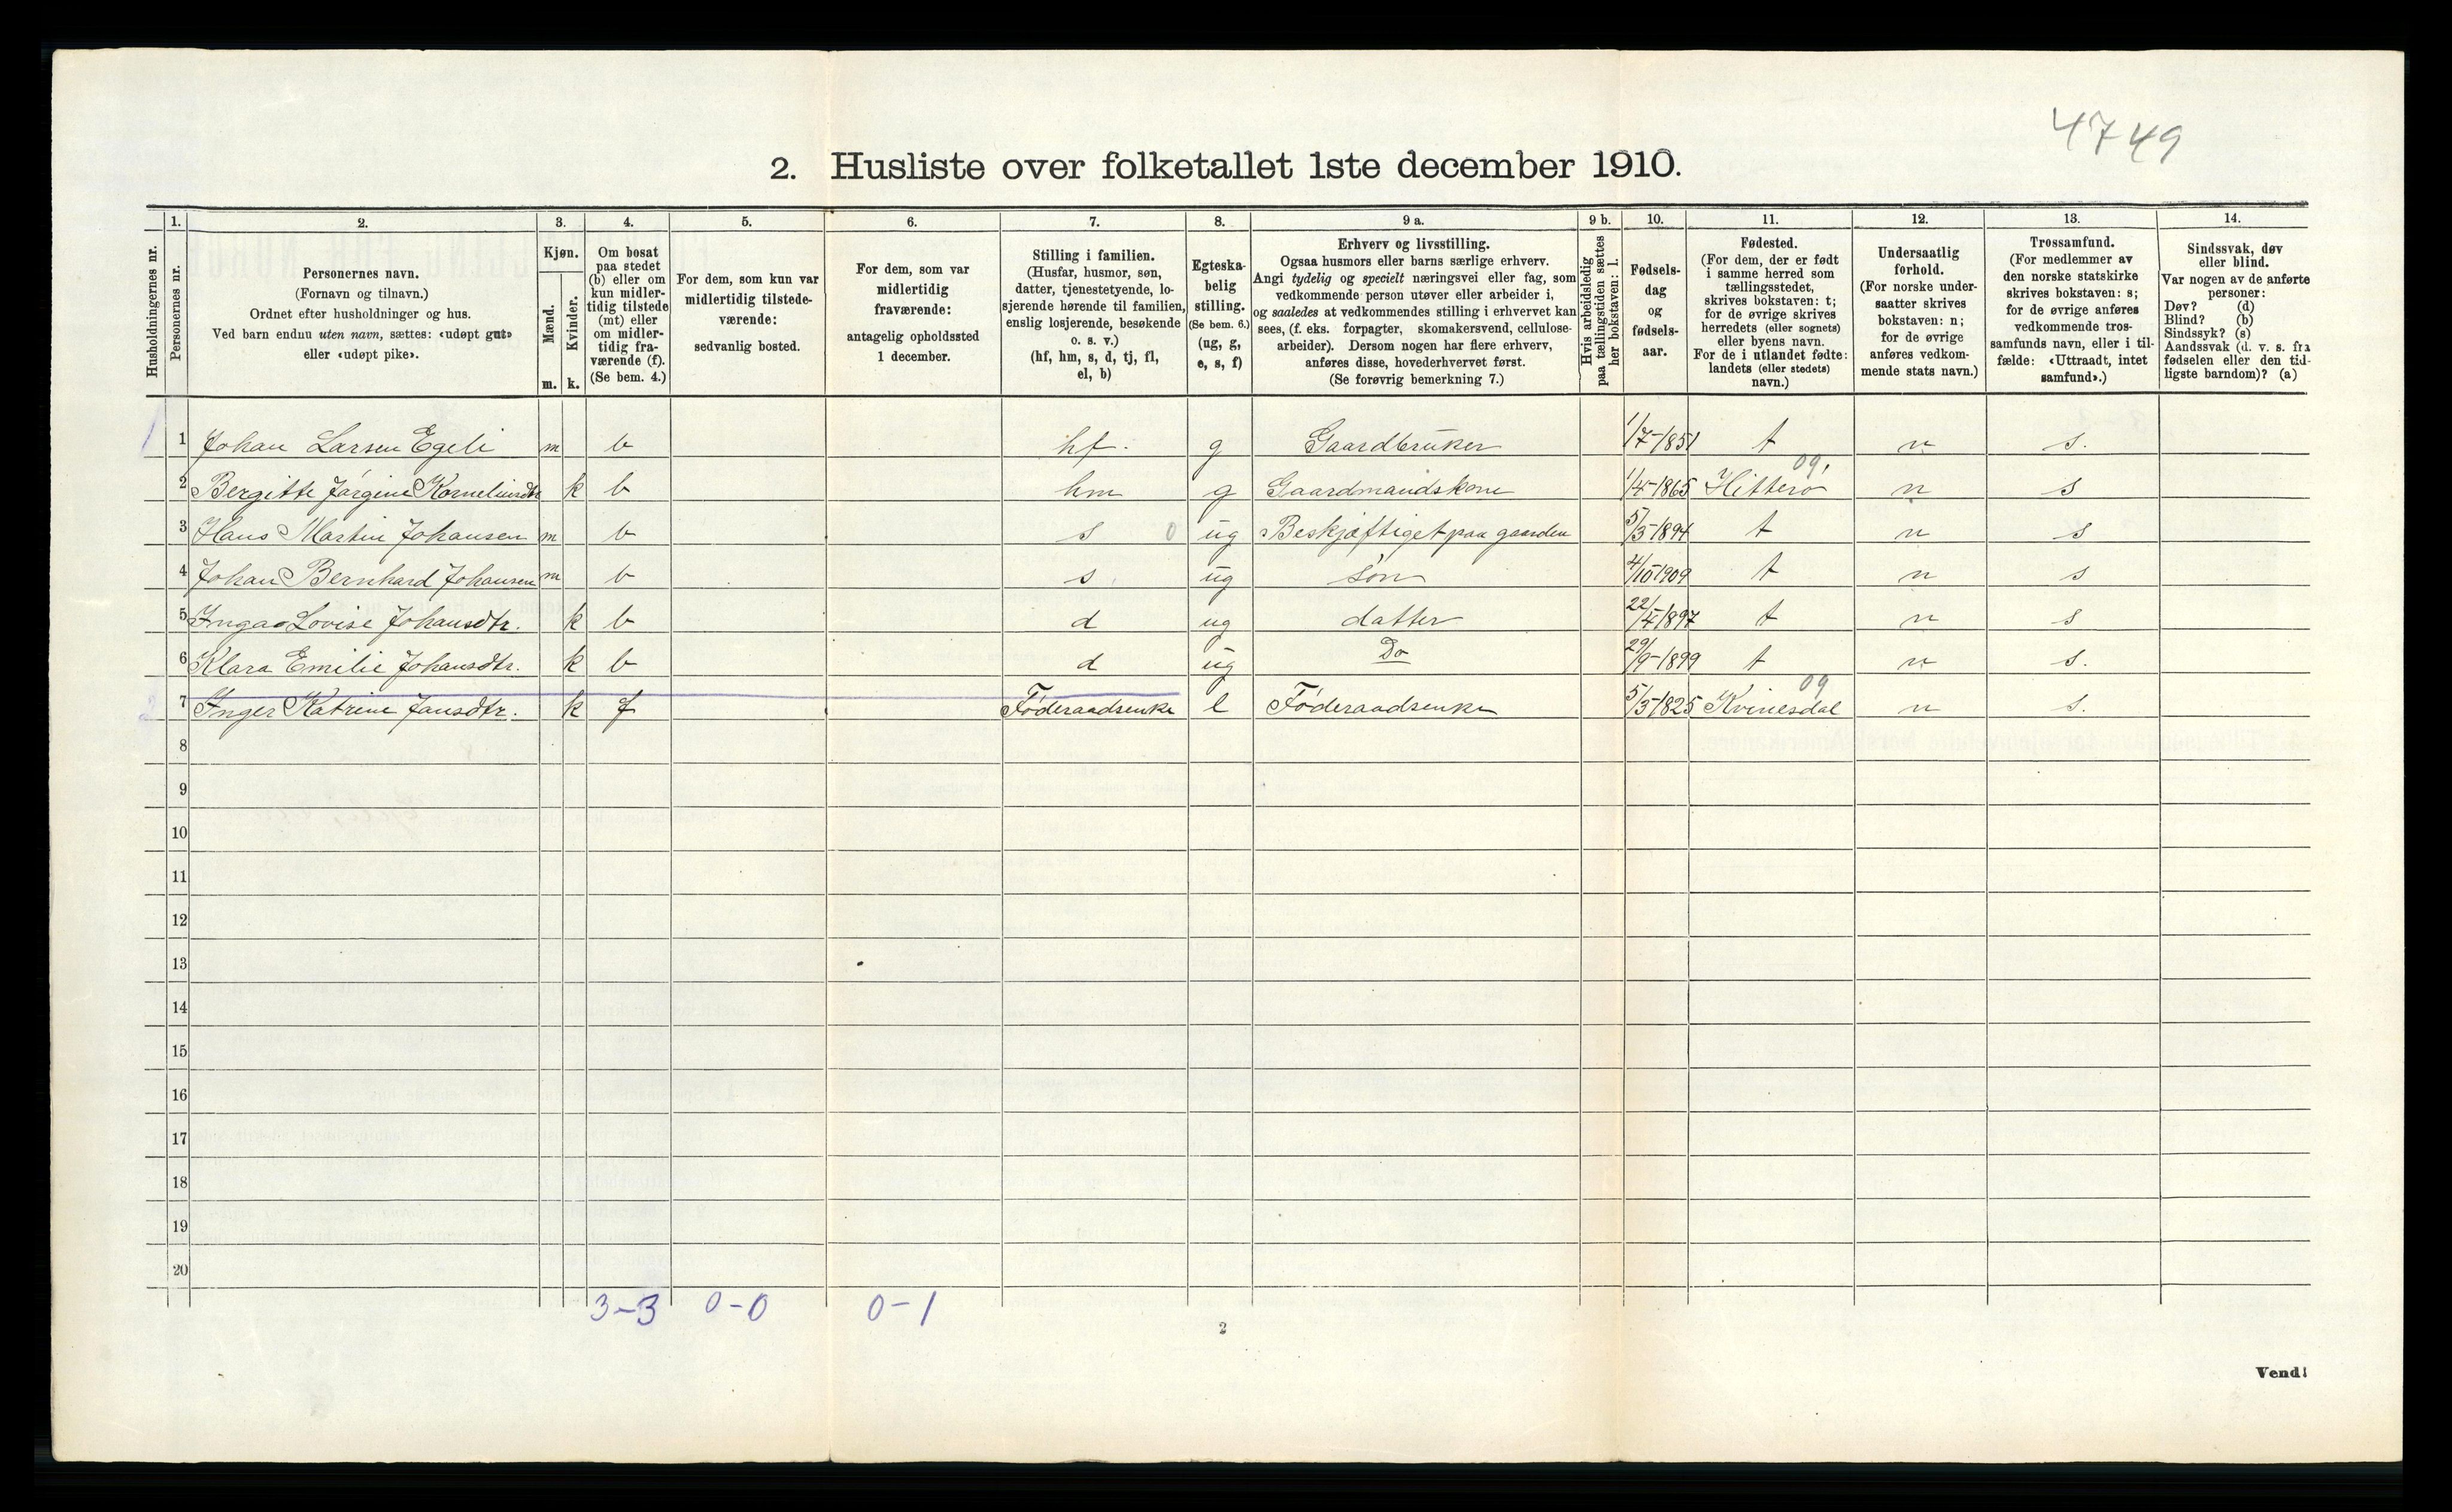 4749
2. Husliste over folketallet 1ste december 1910.
Husholdningernes nr.
1. Personernes nr.
2. Personernes navn.
(Fornavn og tilnavn.)
Ordnet efter husholdninger og hus.
Ved barn endnu uten navn, sættes: «udøpt gut»
eller «udøpt pike».
3. Kjøn.
Mænd. m.
Kvinder. k.
4. Om bosat
paa stedet
(b) eller om
kun midler-
tidig tilstede
(mt) eller
om midler-
tidig fra-
værende (f).
(Se bem. 4.)
5. For dem, som kun var
midlertidig tilstede-
værende:
sedvanlig bosted.
6. For dem, som var
midlertidig
fraværende:
antagelig opholdssted
1 december.
7. Stilling i familien.
(Husfar, husmor, søn,
datter, tjenestetyende, lo-
sjerende hørende til familien,
enslig losjerende, besøkende
o. s. v.)
(hf, hm, s, d, tj, fl,
el, b)
8. Egteska-
belig
stilling.
(Se bem. 6.)
(ug, g,
e, s, f)
9 a. Erhverv og livsstilling.
Ogsaa husmors eller barns særlige erhverv.
Angi tydelig og specielt næringsvei eller fag, som
vedkommende person utøver eller arbeider i,
og saaledes at vedkommendes stilling i erhvervet kan
sees, (f. eks. forpagter, skomakersvend, cellulose-
arbeider). Dersom nogen har flere erhverv,
anføres disse, hovederhvervet først.
(Se forøvrig bemerkning 7.)
9 b. Hvis arbeidsledig
paa tællingstiden sættes
her bokstaven: l.
10. Fødsels-
dag
og
fødsels-
aar.
11. Fødested.
(For dem, der er født
i samme herred som
tællingsstedet,
skrives bokstaven: t;
for de øvrige skrives
herredets (eller sognets)
eller byens navn.
For de i utlandet fødte:
landets (eller stedets)
navn.)
12. Undersaatlig
forhold.
(For norske under-
saatter skrives
bokstaven: n;
for de øvrige
anføres vedkom-
mende stats navn.)
13. Trossamfund.
(For medlemmer av
den norske statskirke
skrives bokstaven: s;
for de øvrige anføres
vedkommende tros-
samfunds navn, eller i til-
fælde: «Uttraadt, intet
samfund».)
14. Sindssvak, døv
eller blind.
Var nogen av de anførte
personer:
Døv? (d)
Blind? (b)
Sindssyk? (s)
Aandssvak (d. v. s. fra
fødselen eller den tid-
ligste barndom)? (a)
1 1 Johan Larsen Egeli m b hf. g Gaardbruker 1/7-1851 t n s.
2 Bergitte Jørgine Korneliusdtr k b hm g Gaardmandskone 1/4-1865 Hitterø 09, n s
3 Hans Martin Johansen m b s 0 ug Beskjæftiget paa gaarden 5/3-1894 t n s
4 Johan Bernhard Johansen m b s ug søn 4/10-1909 t n s
5 Inga Lovise Johansdtr. k b d ug datter 22/4-1897 t n s
6 Klara Emilie Johansdtr. k b d ug Do 29/9-1899 t n s.
2 7 Inger Katrine Jansdtr. k f Føderaadsenke e Føderaadsenke 5/3-1825 Kvinesdal 09 n s.
8
9
10
11
12
13
14
15
16
17
18
19
20
3-3 0-0 0-1
2
Vend!